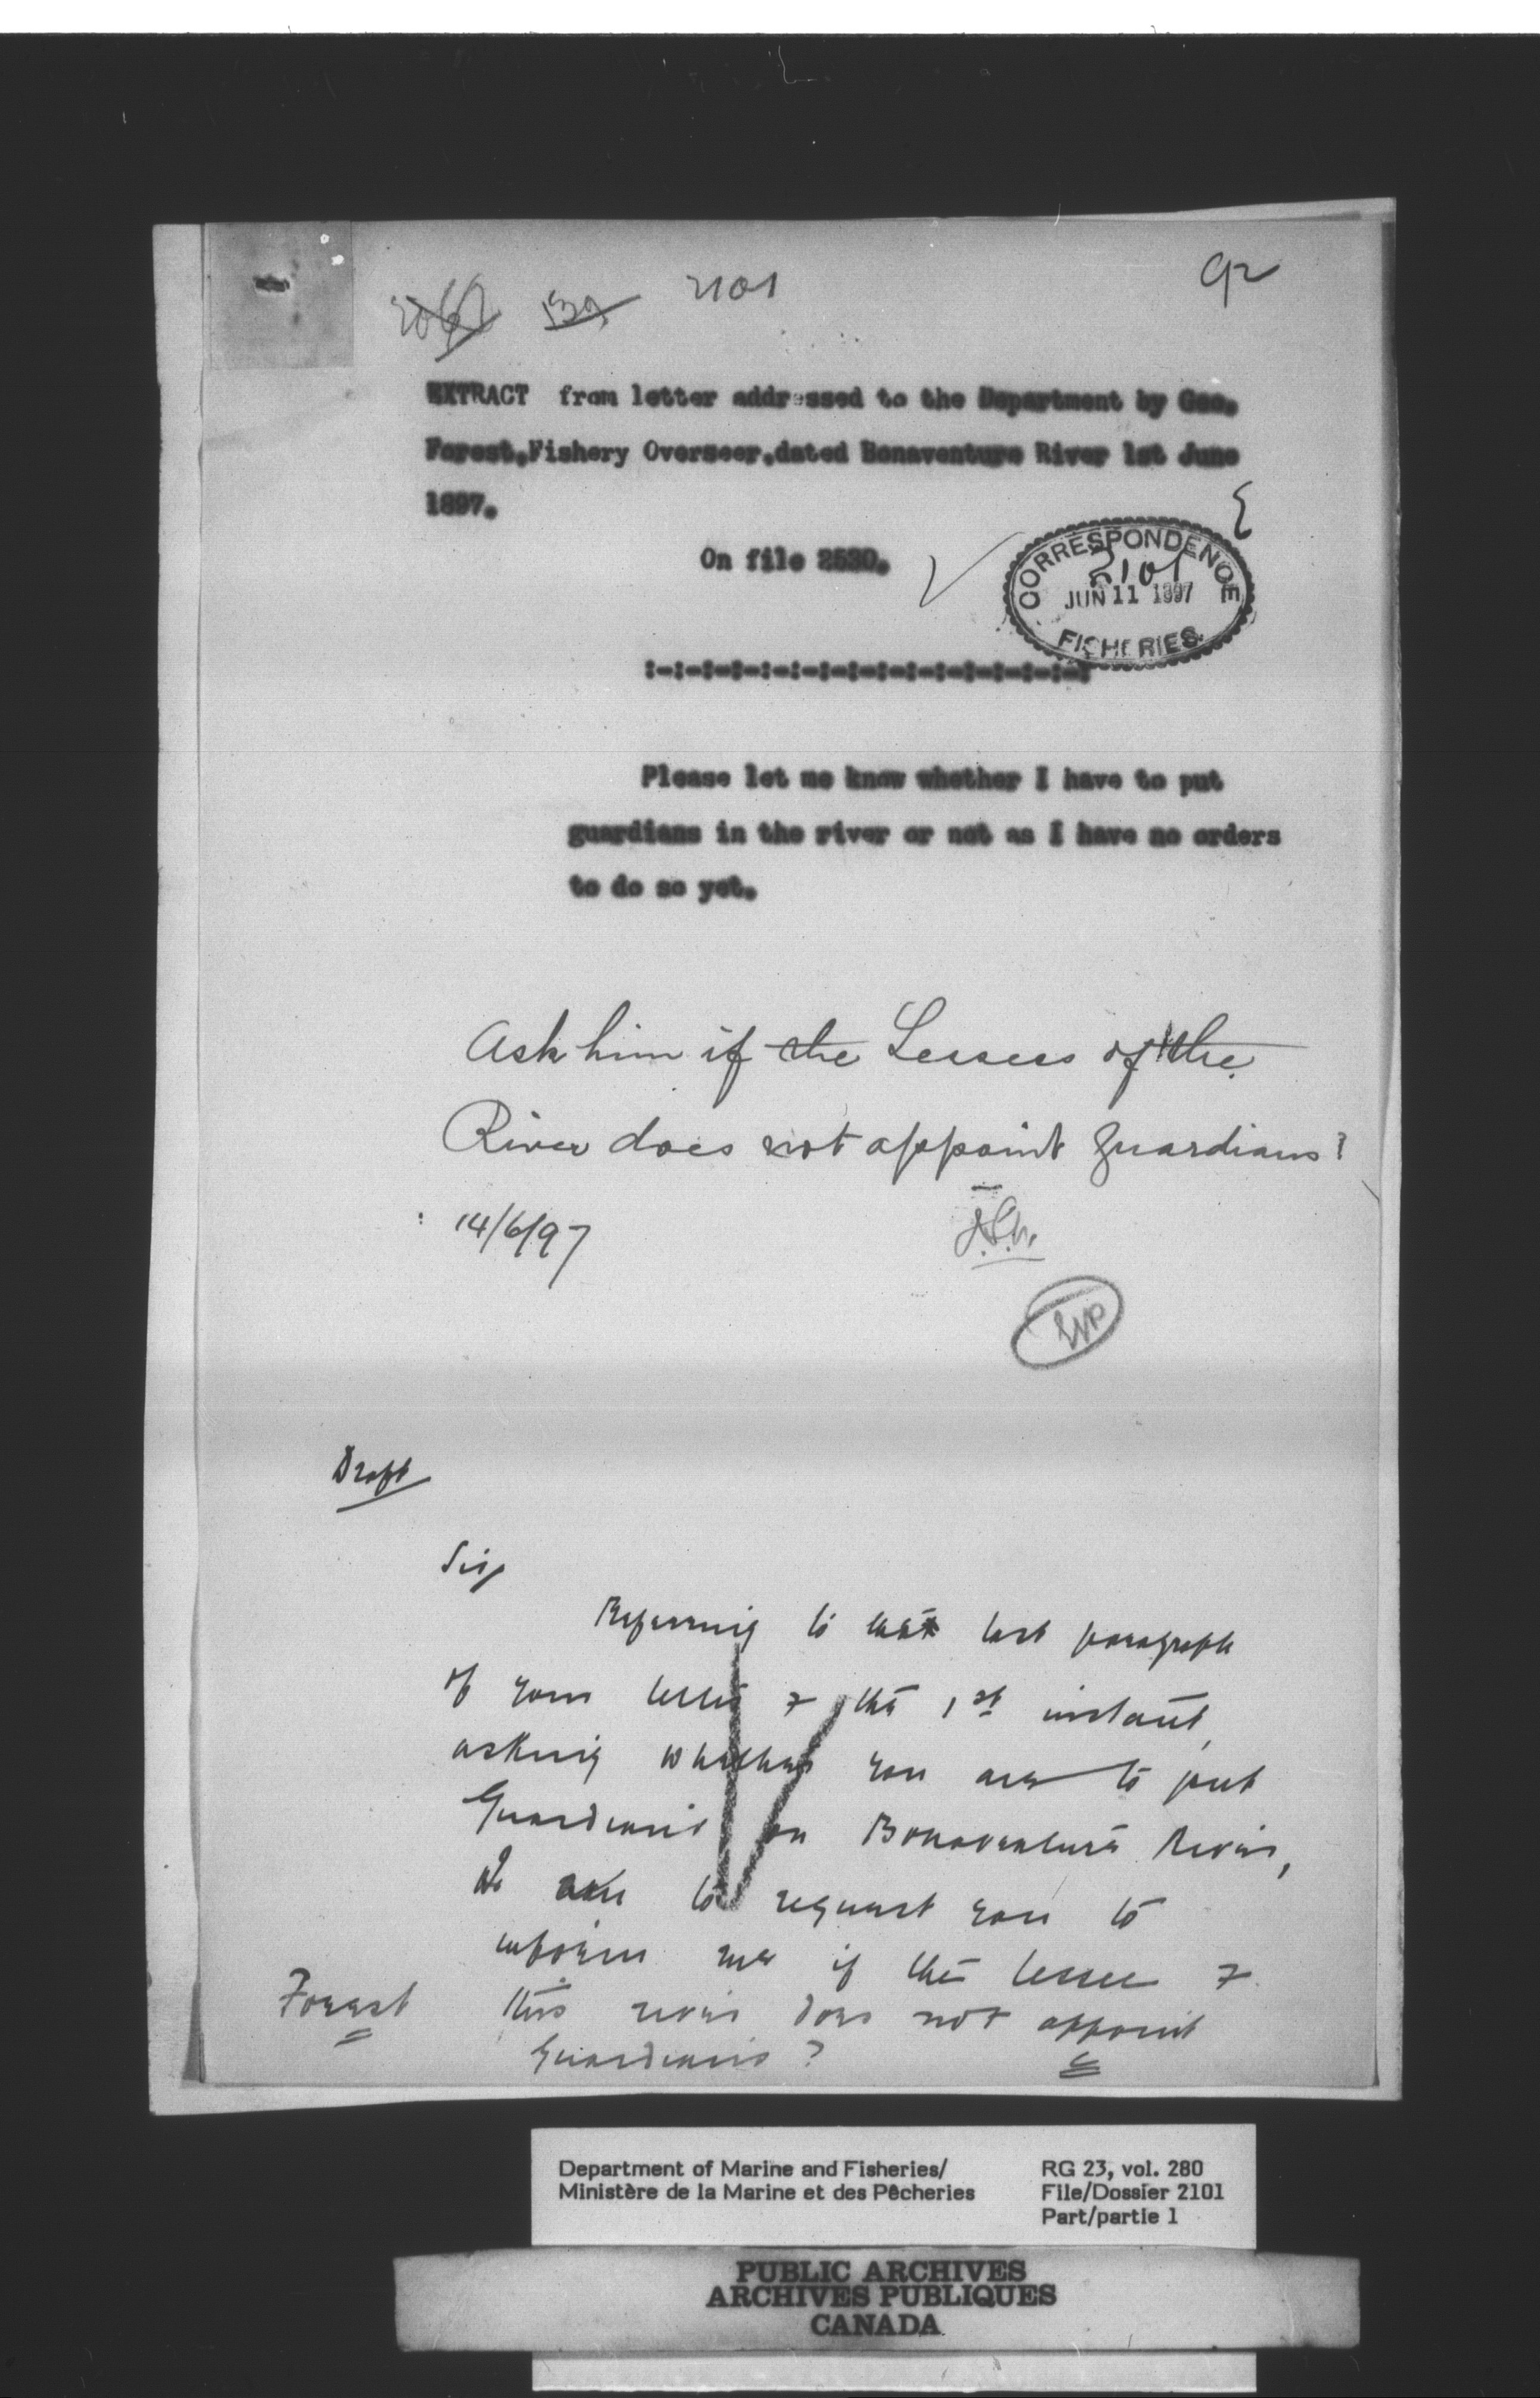 2101
92
EXTRACT from letter addressed to the Department by Geo.
Forest, Fishery Overseer, dated Bonaventure River 1st June
1897.
On file 2530.
CORRESPONDENCE
2101
JUN 11 1897
FISHERIES.
:-:-:-:-:-:-:-:-:-:-:-:-:-:-:-:
Please let me know whether I have to put
guardians in the river or not as I have no orders
to do so yet.
Ask him if the Lessees of the
River does not appoint guardians?
14/6/97
Draft
Sir,
Referring to the last paragraph
of your letter of the 1st instant,
asking whether you are to put
Guardians on Bonaventure River,
I to request you to
inform me if the lessee of
Forest
this river does not appoint
Guardians?
Department of Marine and Fisheries/
Ministère de la Marine et des Pêcheries
RG 23, vol. 280
File/Dossier 2101
Part/partie 1
PUBLIC ARCHIVES
ARCHIVES PUBLIQUES
CANADA